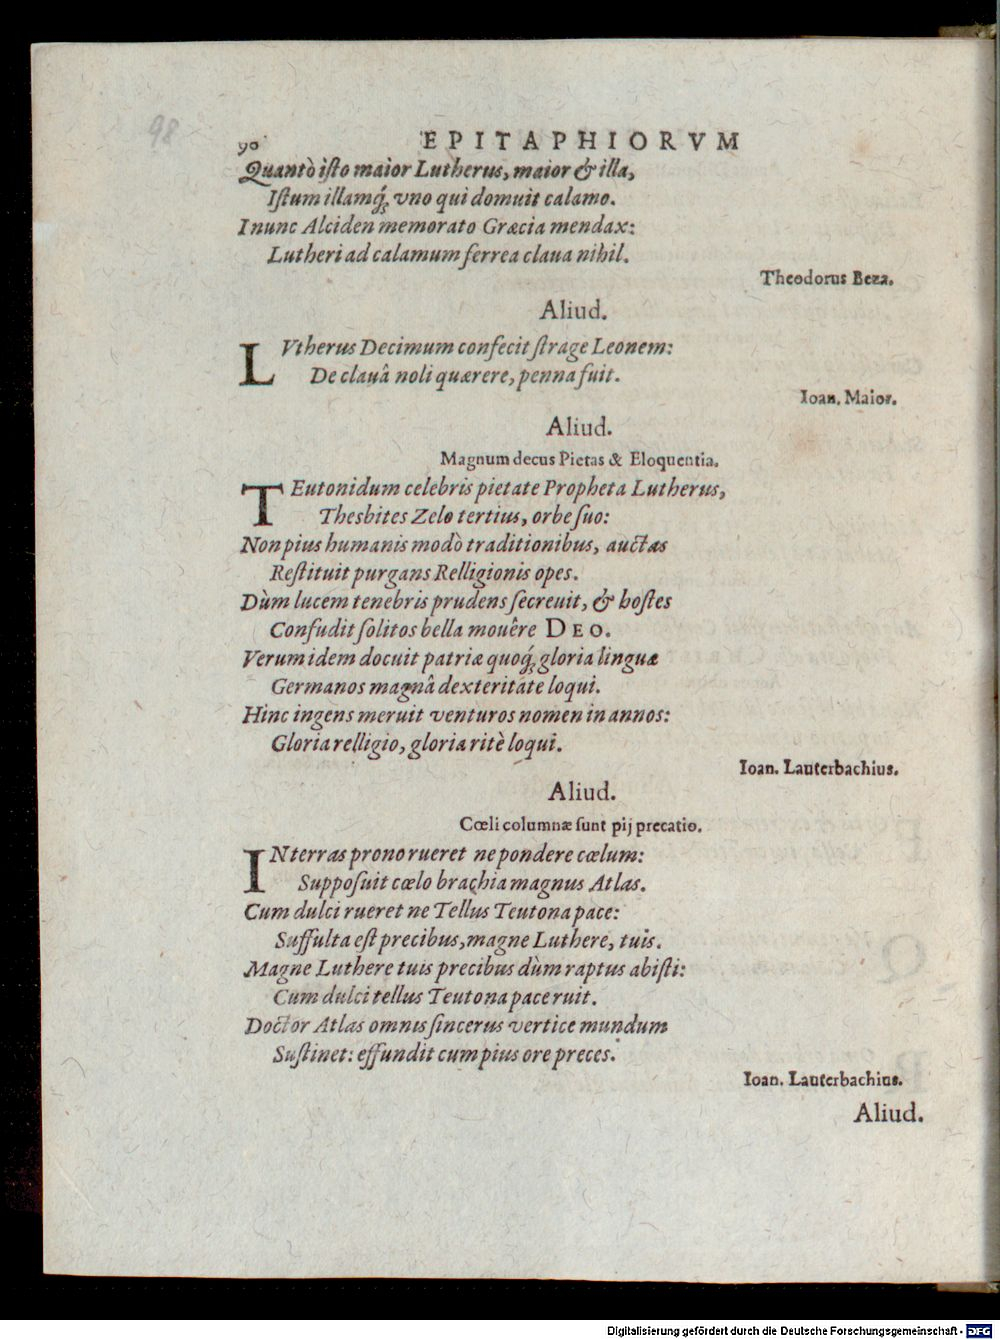 98
90 EPITAPHIORVM
Quantò iſto maior Lutherus, maior & illa,
Iſtum illamq́; vno qui domuit calamo.
I nunc Alciden memorato Græcia mendax:
Lutheri ad calamum ferrea claua nihil.
Theodorus Beza.
Aliud.
LVtherus Decimum confecit ſtrage Leonem:
De clauâ noli quærere, penna fuit.
Ioan. Maior.
Aliud.
Magnum decus Pietas & Eloquentia.
TEutonidum celebris pietate Propheta Lutherus,
Thesbites Zelo tertius, orbe ſuo:
Non pius humanis modò traditionibus, auctas
Reſtituit purgans Relligionis opes.
Dùm lucem tenebris prudens ſecreuit, & hoſtes
Confudit ſolitos bella mouêre DEO.
Verum idem docuit patriæ quoq́; gloria linguæ
Germanos magnâ dexteritate loqui.
Hinc ingens meruit venturos nomen in annos:
Gloria relligio, gloria ritè loqui.
Ioan. Lauterbachius.
Aliud.
Cœli columnæ ſunt pij precatio.
IN terras prono rueret ne pondere cœlum:
Suppoſuit cœlo brachia magnus Atlas.
Cum dulci rueret ne Tellus Teutona pace:
Suffulta eſt precibus, magne Luthere, tuis.
Magne Luthere tuis precibus dùm raptus abiſti:
Cum dulci tellus Teutona pace ruit.
Doctor Atlas omnis ſincerus vertice mundum
Suſtinet: effundit cum pius ore preces.
Ioan. Lauterbachius.
Aliud.
Digitalisierung gefördert durch die Deutsche Forschungsgemeinschaft - DFG